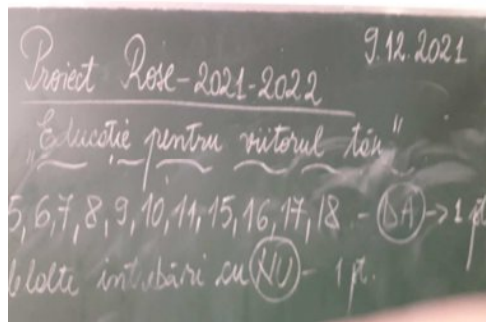 9.12.2021
Proiect Rose-2021-2022
„Educatie pentru viitorul tău"
5, 6, 7, 8, 9, 10, 11, 15, 16, 17, 18 - DA -> 1 pt
întrebări cu NU - 1 pt.